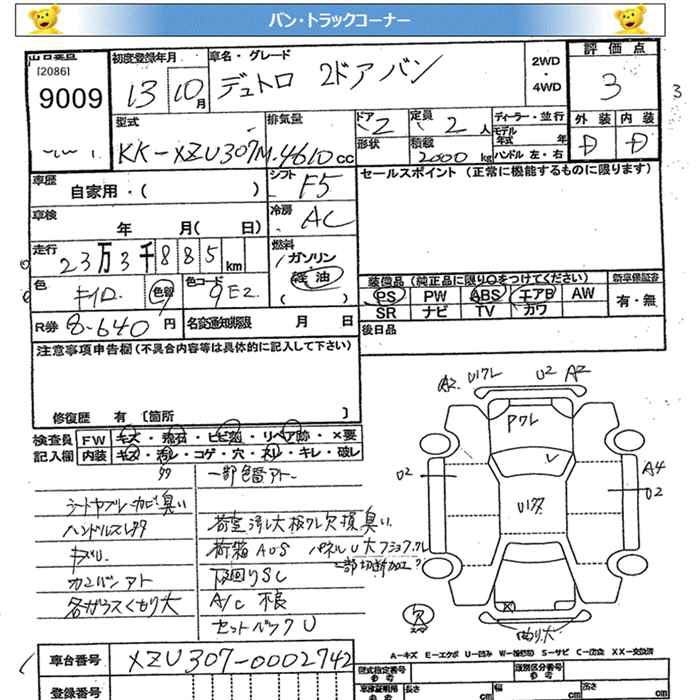 バン・トラックコーナー
[2086]
9009
初度登録年月
13 10月
車名・グレード
デュトロ 2ドアバン
2WD
・
4WD
評価点
3
3
外装 内装
D D
型式
KK-XZU307M
排気量
4610cc
ドア 2
形状
定員 2人
積載 2000kg
ディーラー・並行
モデル年式 年
ハンドル 左・右
車歴
自家用・( )
シフト F5
セールスポイント（正常に機能するものに限ります）
車検
年 月( 日)
冷房 AC
走行
23万3千885km
燃料
ガソリン
軽油
( )
色
キイロ
色替
色コード
9E2
装備品（純正品に限り○をつけてください）
新車保証書
PS PW ABS エアB AW
SR ナビ TV カワ
有・無
R券 8-640円
名変通知期限 月 日
後日品
注意事項申告欄（不具合内容等は具体的に記入して下さい）
修復歴 有 [箇所 ]
検査員
記入欄
FW キズ・飛石・ヒビ割・リペア跡・×要
内装 キズ・汚レ・コゲ・穴・スレ・キレ・破レ
一部色替アト
シートヤブレ・カビ臭い
ハンドルスレ
荷室汚レ大 板ワレ欠損 臭い
荷箱AUS パネルU大
一部切断加工
カンバンアト
下回りSC
各ガラスくもり大
A/C不良
セットバックU
A2 U1ワレ U2 A2
Pワレ
U2
A4
U2
欠
スペア
曲り大
A－キズ E－エクボ U－凹ミ W－補修跡 S－サビ C－腐食 XX－交換済
車台番号
XZU307-0002742
登録番号
型式指定番号
参考
類別区分番号
参考
長さ cm
幅 cm
高さ cm